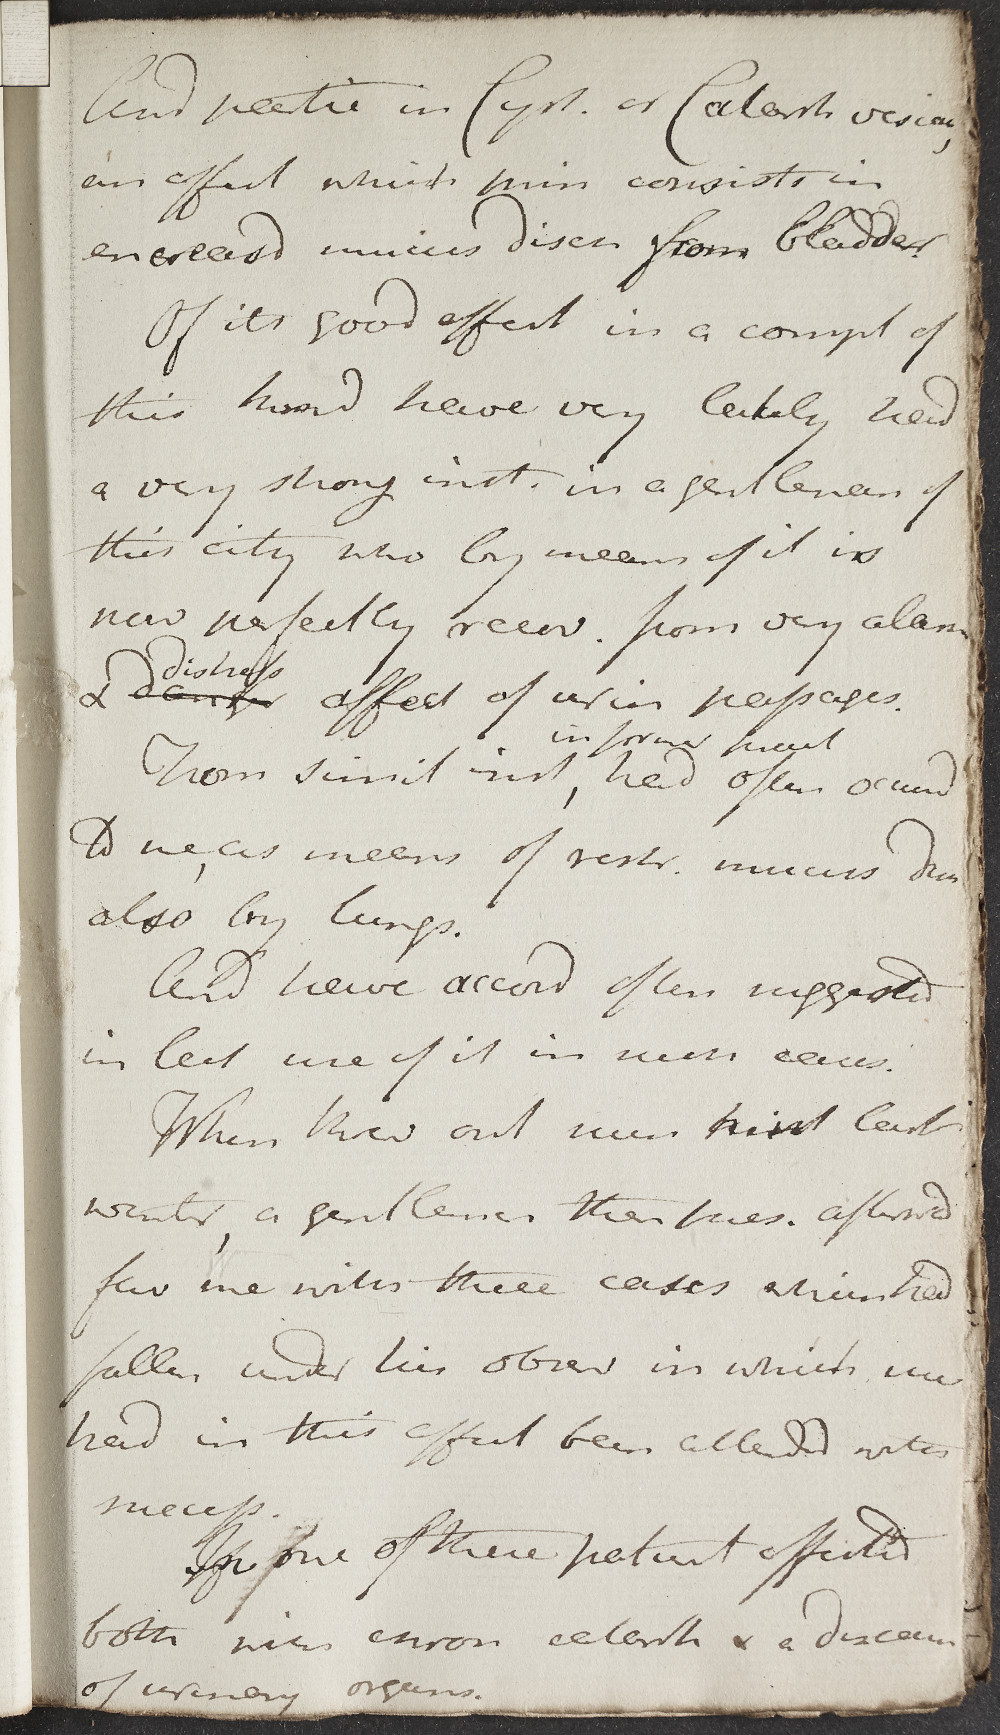 And partic in Cyst. or Catarrh vesicae,
an affect which prin consists in
encreasd mucus disch from bladder.
Of its good effect in a compl of
this kind have very lately had
a very strong inst. in a gentleman of
this city who by means of it is
now perfectly recov. from very alarm
distress
& danger affect of urin passages.
in former pract
From simil inst, had often occurrd
to me, as means of restr. mucus disch
also by lungs.
And have accord often suggested
in lect use of it in such cases.
When threw out such hint last
winter, a gentleman then pres. afterwd
fav me with three cases which had
fallen under his observ in which use
had in this affect been attended with
success.
In one of these patient affected
both with chron catarrh & a disease
of urinary organs.